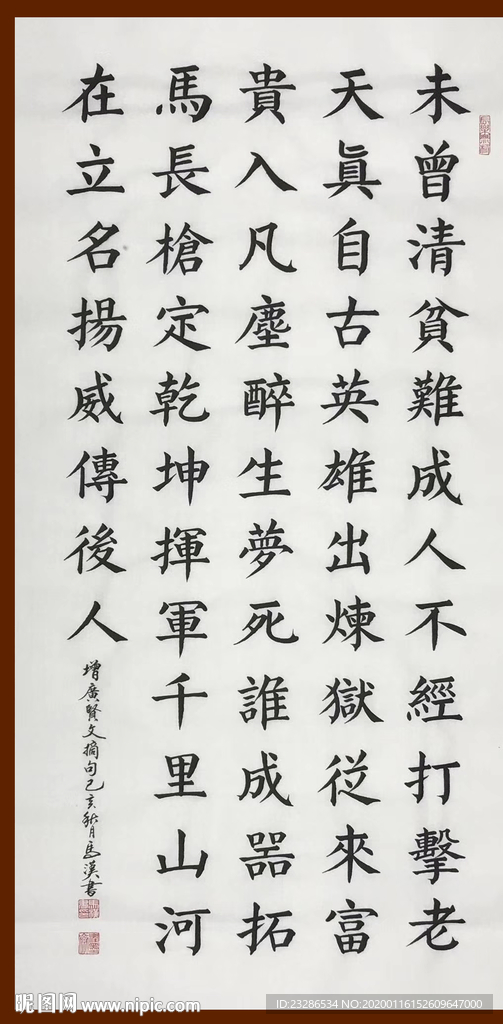 未曾清貧難成人不經打擊老
天眞自古英雄出煉獄從來富
貴入凡塵醉生夢死誰成器拓
馬長槍定乾坤揮軍千里山河
在立名揚威傳後人
增廣賢文摘句己亥秋月馬漢書
昵图网 www.nipic.com
ID:23286534 NO:20200116152609647000